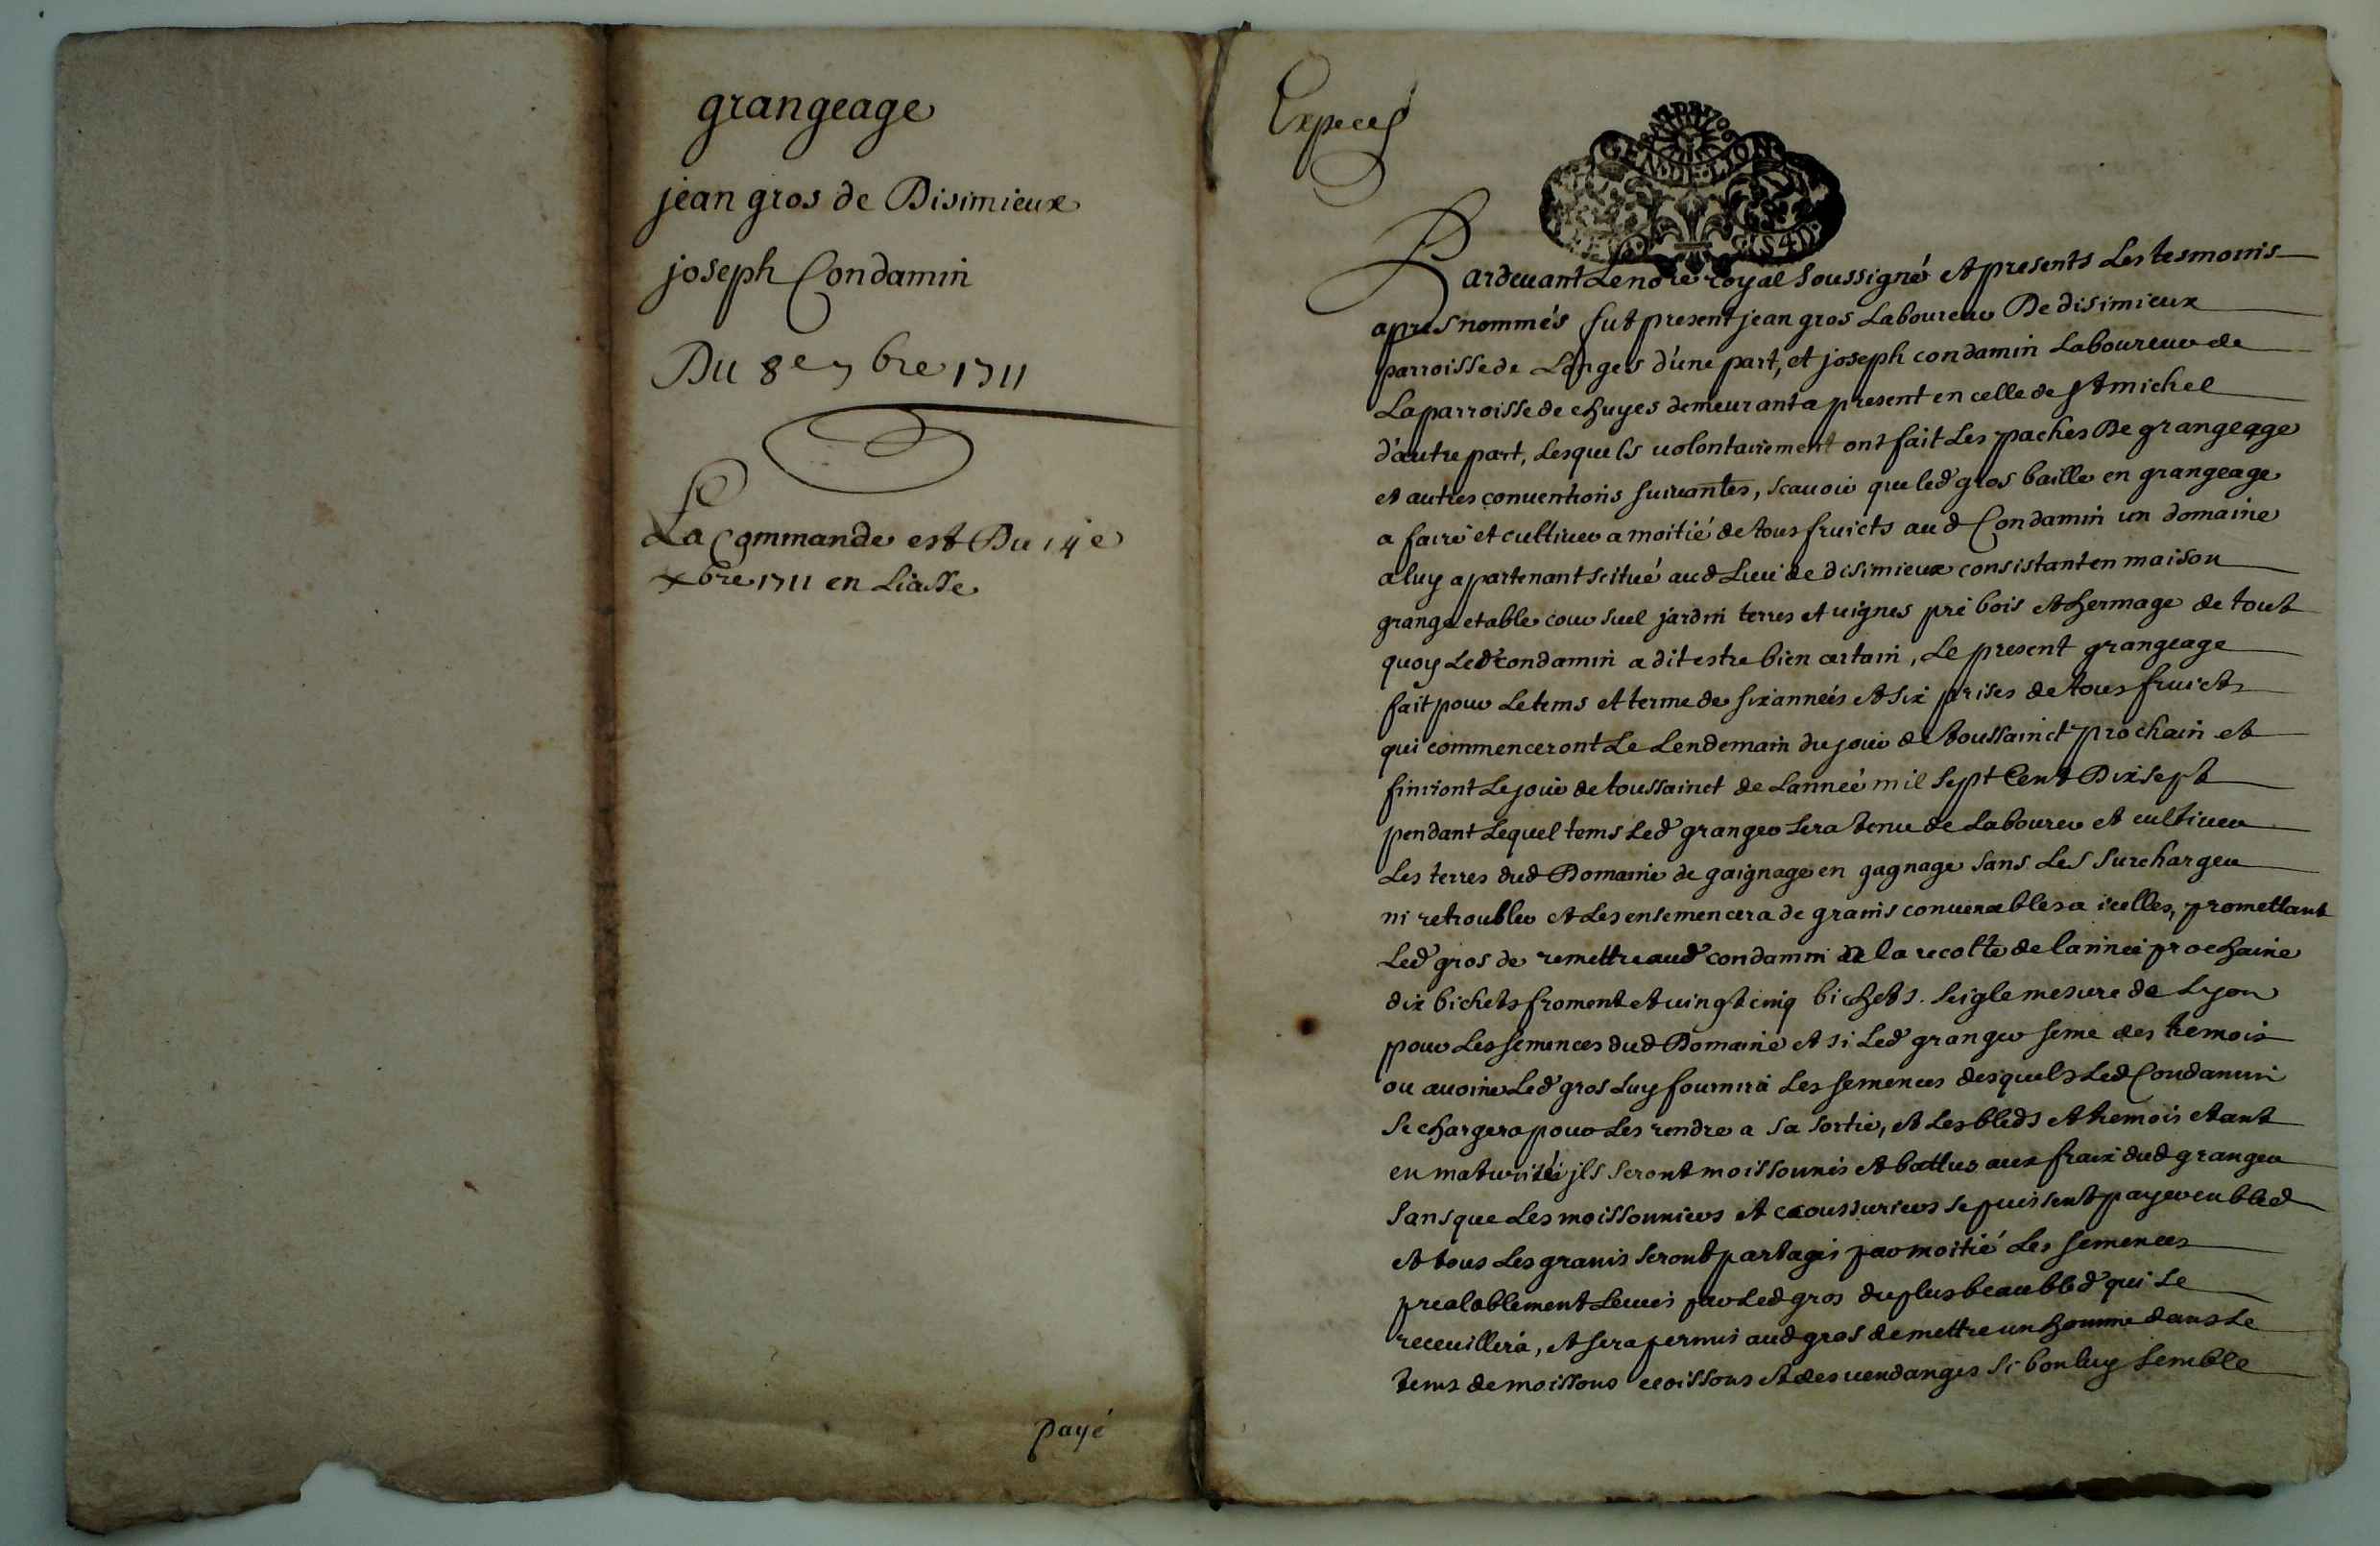 grangeage
jean gros de Disimieux
joseph Condamin
Du 8e 7bre 1711
La Commande est Du 14e
xbre 1711 en Liasse
payé
Expeed
Pardevant Le nore royal soussigné et presents Les tesmoins
apres nommés fut present jean gros Laboureur De disimieux
parroisse de Longes d'une part, et joseph condamin Laboureur de
La parroisse de chuyes demeurant a present en celle de st michel
d'autre part, Lesquels volontairement ont fait Les paches De grangeage
et autres conventions suivantes, scavoir que led gros baille en grangeage
a faire et cultiver a moitié de tous fruicts aud Condamin un domaine
a luy apartenant scitué aud Lieu de disimieux consistant en maison
grange etable cour suel jardin terres et vignes pré bois et hermage de tout
quoy Led condamin a dit estre bien certain, Le present grangeage
fait pour Le tems et terme de six années et six prises de tous fruicts
qui commenceront Le Lendemain du jour de toussainct prochain et
finiront Le jour de toussainct de Lannée mil sept Cent Dix sept
pendant Lequel tems Led granger sera tenu de Labourer et cultiver
Les terres dud Domaine de gaignage en gagnage sans Les surcharger
ni retroubler et Les ensemencera de grains convenables a icelles, promettant
Led gros de remettre aud condamin a la recolte de lannée prochaine
dix bichets froment et vingt cinq bichets seigle mesure de Lyon
pour Les semences dud Domaine et si Led granger seme des tremois
ou avoine Led gros Luy fournira Les semences desquels Led Condamin
se chargera pour Les rendre a sa sortie, et Les bleds et tremois etant
en maturité jls seront moissonnés et battus aux fraix dud granger
sans que Les moissonniers et ecoussuriers se puissent payer en bled
et tous Les grains seront partagés par moitié Les semences
prealablement Levées par Led gros du plus beau bled qui se
receuillera, et sera permis aud gros de mettre un homme dans Le
tems de moissons ecoissons et des vendanges si bon luy semble